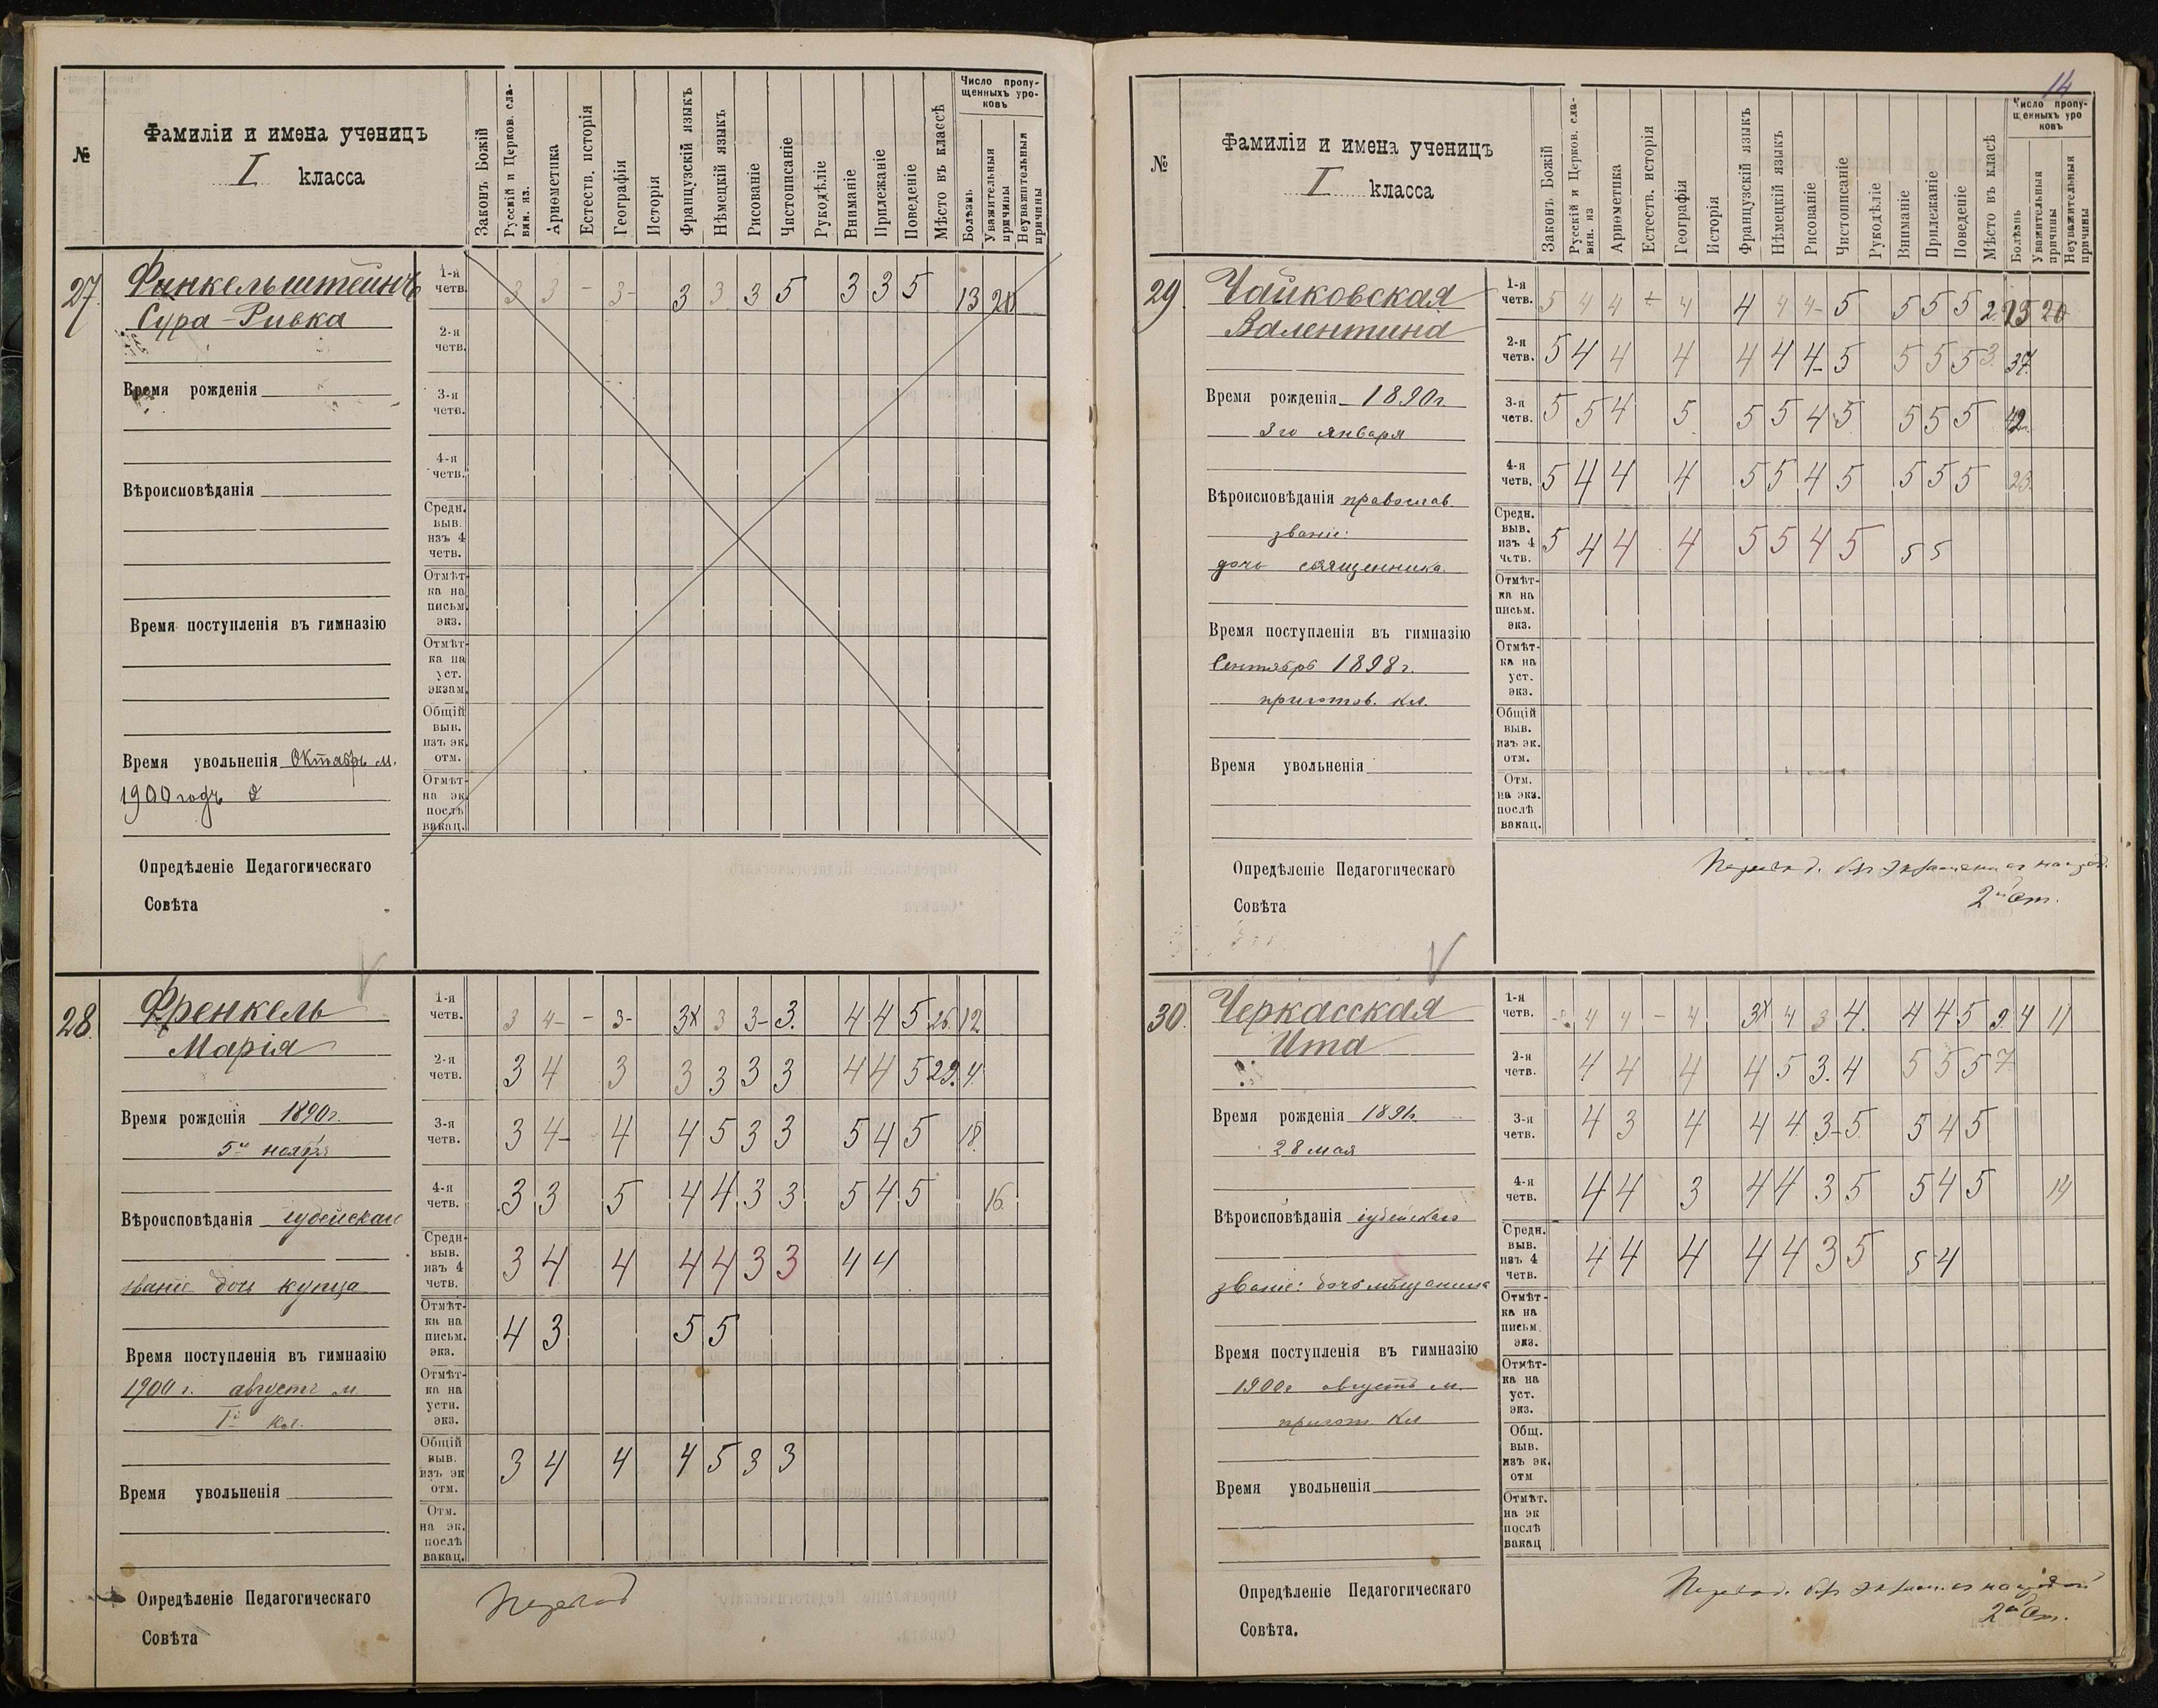 №
Фамиліи и имена ученицъ
I класса
Законъ Божій
Русскій и Церков. сла-
вян. яз.
Ариѳметика
Естеств. исторія
Географія
Исторія
Французскій языкъ
Нѣмецкій языкъ
Рисованіе
Чистописаніе
Рукодѣліе
Вниманіе
Прилежаніе
Поведеніе
Мѣсто въ классѣ
Число пропу-
щенныхъ уро-
ковъ
Болѣзнь
Уважительныя
причины
Неуважительныя
причины
27.
Финкельштейнъ
Сура-Ривка
Время рожденія
Вѣроисповѣданія
Время поступленія въ гимназію
Время увольненія Октябрь м.
1900 годъ
1-я четв. 3 3 - 3- 3 3 3 5 3 3 5 13 20
2-я четв.
3-я четв.
4-я четв.
Средн. выв. изъ 4 четв.
Отмѣт-ка на письм. экз.
Отмѣт-ка на уст. экзам.
Общій выв. изъ эк. отм.
Отмѣт- на эк. послѣ вакац.
Опредѣленіе Педагогическаго
Совѣта
28.
Френкель
Марія
Время рожденія 1890 г.
5го ноября
Вѣроисповѣданія іудейскаго
званіе дочь купца
Время поступленія въ гимназію
1900 г. августъ м.
Iй кл.
Время увольненія
1-я четв. 3 4- - 3- 3х 3 3- 3. 4 4 5 26. 12.
2-я четв. 3 4 3 3 3 3 3 4 4 5 29. 4.
3-я четв. 3 4- 4 4 5 3 3 5 4 5 18.
4-я четв. 3 3 5 4 4 3 3 5 4 5 16.
Средн. выв. изъ 4 четв. 3 4 4 4 4 3 3 4 4
Отмѣт-ка на письм. экз. 4 3 5 5
Отмѣт-ка на устн. экз.
Общій выв. изъ эк отм. 3 4 4 4 5 3 3
Отм. на эк. послѣ вакац.
Опредѣленіе Педагогическаго
Совѣта
Перевод
14
№
Фамиліи и имена ученицъ
I класса
Законъ Божій
Русскій и Церков. сла-
вян. яз
Ариѳметика
Естеств. исторія
Географія
Исторія
Французскій языкъ
Нѣмецкій языкъ
Рисованіе
Чистописаніе
Рукодѣліе
Вниманіе
Прилежаніе
Поведеніе
Мѣсто въ класѣ
Число пропу-
щенныхъ уро
ковъ
Болѣзнь
Уважительныя
причины
Неуважительныя
причины
29.
Чайковская
Валентина
Время рожденія 1890 г.
3го января
Вѣроисповѣданія православ.
званіе:
дочь священника.
Время поступленія въ гимназію
Сентябрь 1898 г.
приготов. кл.
Время увольненія
1-я четв. 5 4 4 4 4 4 4- 5 5 5 5 2. 25 20
2-я четв. 5 4 4 4 4 4 4- 5 5 5 5 3. 37.
3-я четв. 5 5 4 5 5 5 4 5 5 5 5 42.
4-я четв. 5 4 4 4 5 5 4 5 5 5 5 23.
Средн. выв. изъ 4 четв. 5 4 4 4 5 5 4 5 5 5
Отмѣт-ка на письм. экз.
Отмѣт-ка на уст. экз.
Общій выв. изъ эк. отм.
Отм. на экз. послѣ вакац.
Опредѣленіе Педагогическаго
Совѣта
Перевод. без экзамена с наград.
2й ст.
30.
Черкасская
Ита
Время рожденія 1891 г.
28 мая
Вѣроисповѣданія іудейскаго
званіе: дочь мѣщанина
Время поступленія въ гимназію
1900 г августъ м.
пригот. кл
Время увольненія
1-я четв. 4 4 - 4 3х 4 3 4. 4 4 5 9 4 11
2-я четв. 4 4 4 4 5 3. 4 5 5 5 7.
3-я четв. 4 3 4 4 4 3- 5 5 4 5
4-я четв. 4 4 3 4 4 3 5 5 4 5 14
Средн. выв. изъ 4 четв. 4 4 4 4 4 3 5 5 4
Отмѣт-ка на письм. экз.
Отмѣт-ка на уст. экз.
Общ. выв. изъ эк. отм
Отмѣт. на эк послѣ вакац
Опредѣленіе Педагогическаго
Совѣта.
Перевод. без экзам. с наградой
2й ст.